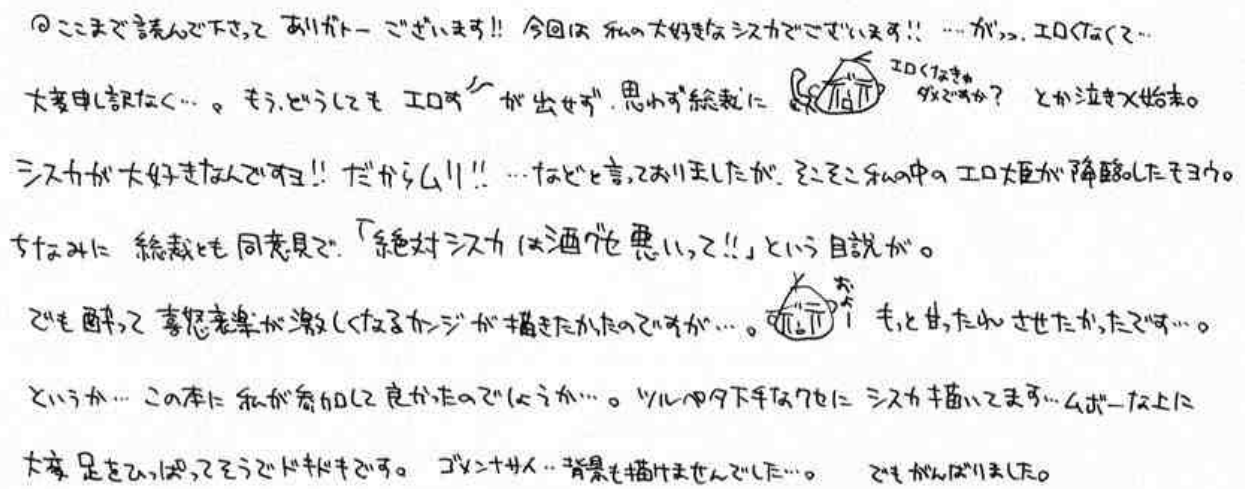 @ここまで読んで下さって ありガトーございます!! 今回は 私の大好きな シスカでございます!! …がっっ、エロくなくて…
大変申し訳なく…。 もう、どうしても エロすが出せず、思わず総裁に エロくなきゃダメですか? とか泣き〆始末。
シスカが大好きなんですヨ!! だからムリ!! …などと言っておりましたが、そこそこ私の中のエロ大臣が降臨したモヨウ。
ちなみに 総裁とも同意見で、「絶対シスカは酒グセ悪いって!!」という自説が。
でも酔って 喜怒哀楽が激しくなるカンジが描きたかったのですが…。 およー もっと甘ったれ させたかったです…。
というか… この本に 私が参加して良かったのでしょうか…。 ツルペタ下手なクセに シスカ描いてます…ムボーな上に
大変 足をひっぱってそうでドキドキです。 ゴメンナサイ…背景も描けませんでした…。 でもがんばりました。